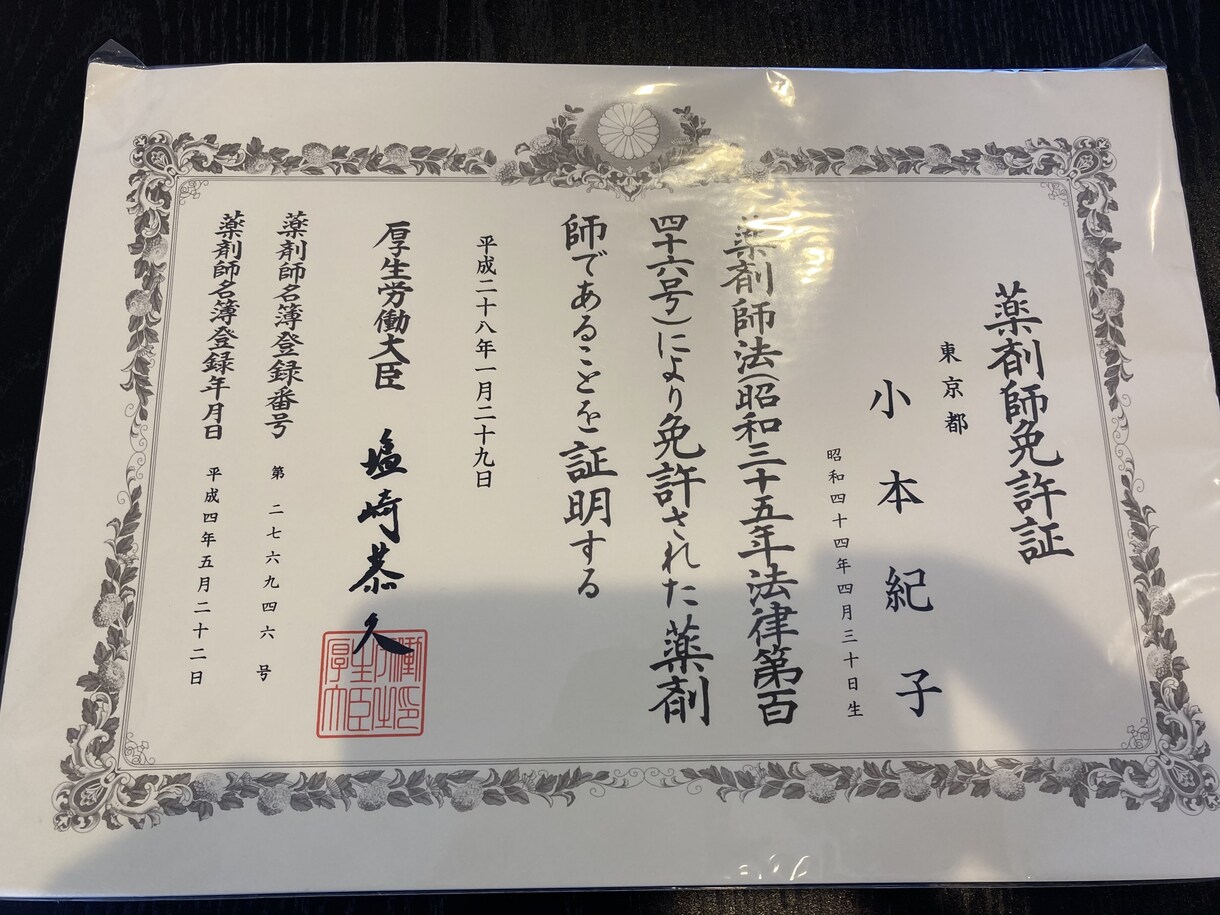 薬剤師免許証
東京都
小本紀子
昭和四十四年四月三十日生
薬剤師法(昭和三十五年法律第百
四十六号)により免許された薬剤
師であることを証明する
平成二十八年一月二十九日
厚生労働大臣 塩崎恭久
薬剤師名簿登録番号 第二七六九四六号
薬剤師名簿登録年月日 平成四年五月二十二日